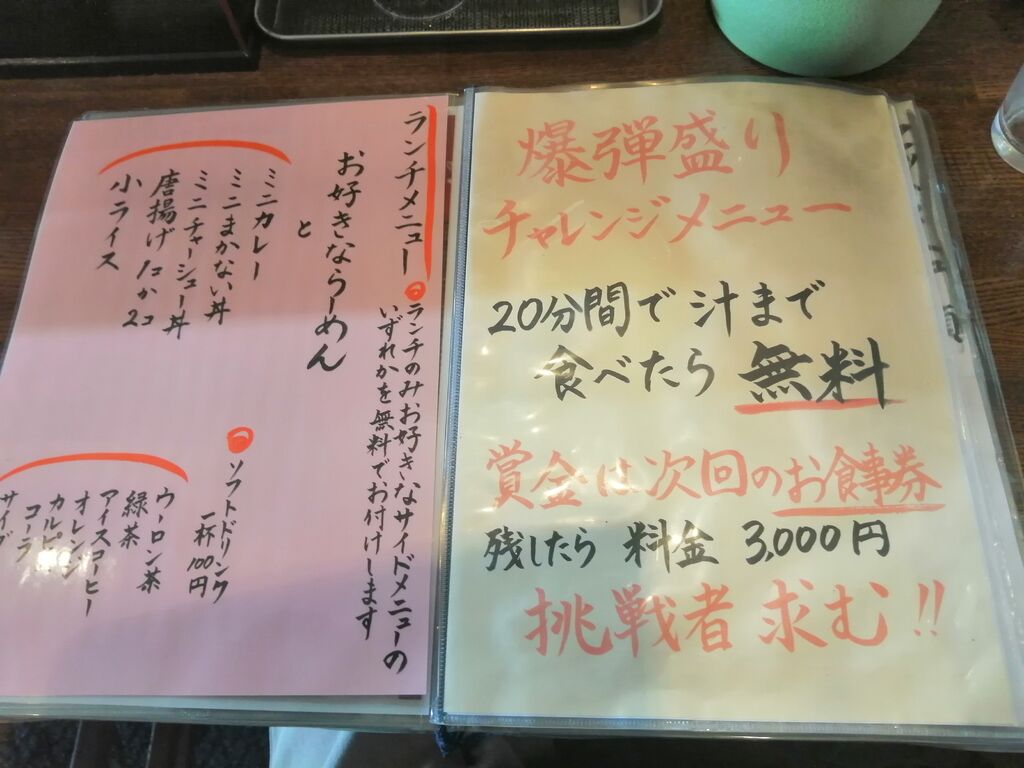 ランチメニュー
ランチのみお好きなサイドメニューの
いずれかを無料でお付けします
お好きならーめん
と
ミニカレー
ミニまかない丼
ミニチャーシュー丼
唐揚げ1コか2コ
小ライス
ソフトドリンク
一杯100円
ウーロン茶
緑茶
アイスコーヒー
オレンジ
カルピス
コーラ
サイダ
爆弾盛り
チャレンジメニュー
20分間で汁まで
食べたら無料
賞金は次回のお食事券
残したら 料金 3,000円
挑戦者 求む!!